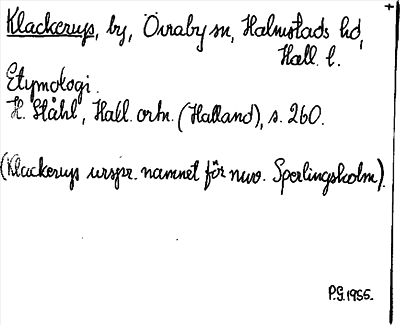 Klackerups, by, Övraby sn, Halmstads hd,
Hall. l.
Etymologi.
H. Ståhl, Hall. ortn. (Halland), s. 260.
(Klackerups urspr. namnet för nuv. Sperlingsholm).
P.G. 1955.